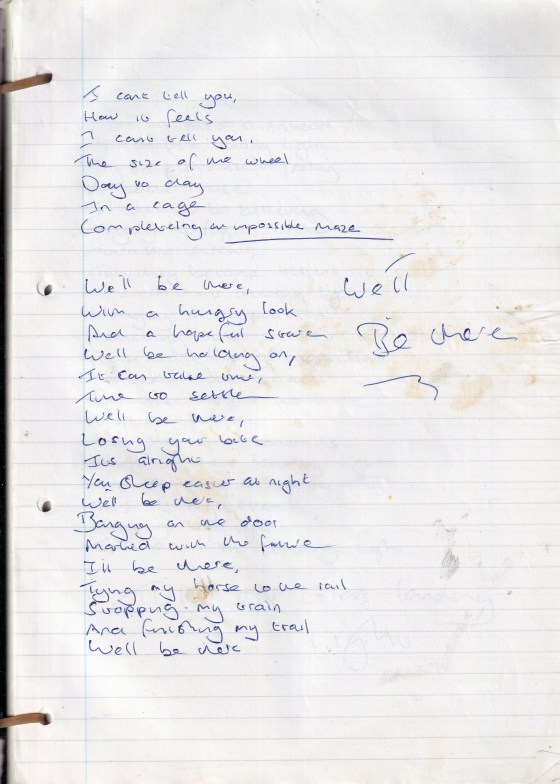 I cant tell you,
How it feels
I cant tell you,
The size of the wheel
Day to day
In a cage
Completeing an impossible maze
We'll be there,
With a hungry look
And a hopeful stare
We'll be holding on,
It can take time,
Time to settle
We'll be there,
Losing your bite
Its alright
You sleep easier at night
We'll be there,
Banging on the door
Marked with the future
I'll be there,
Tying my horse to the rail
Stopping my train
And finishing my trail
We'll be there
We'll
Be there